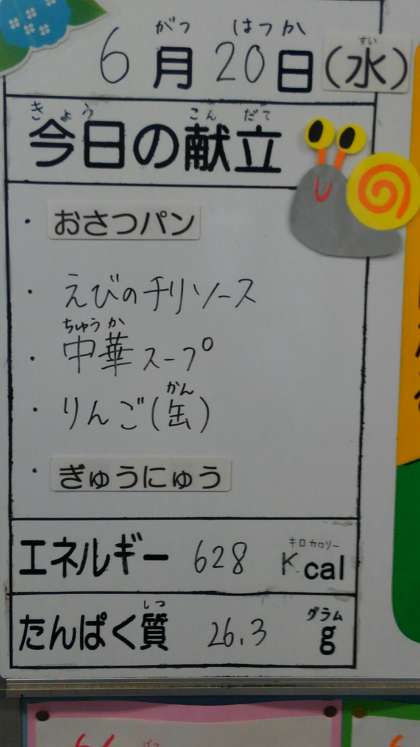 がつ はつか
6月20日(水)
すい
きょう こんだて
今日の献立
・おさつパン
・えびのチリソース
ちゅうか
・中華スープ
かん
・りんご(缶)
・ぎゅうにゅう
キロカロリー
エネルギー 628 Kcal
しつ グラム
たんぱく質 26.3 g